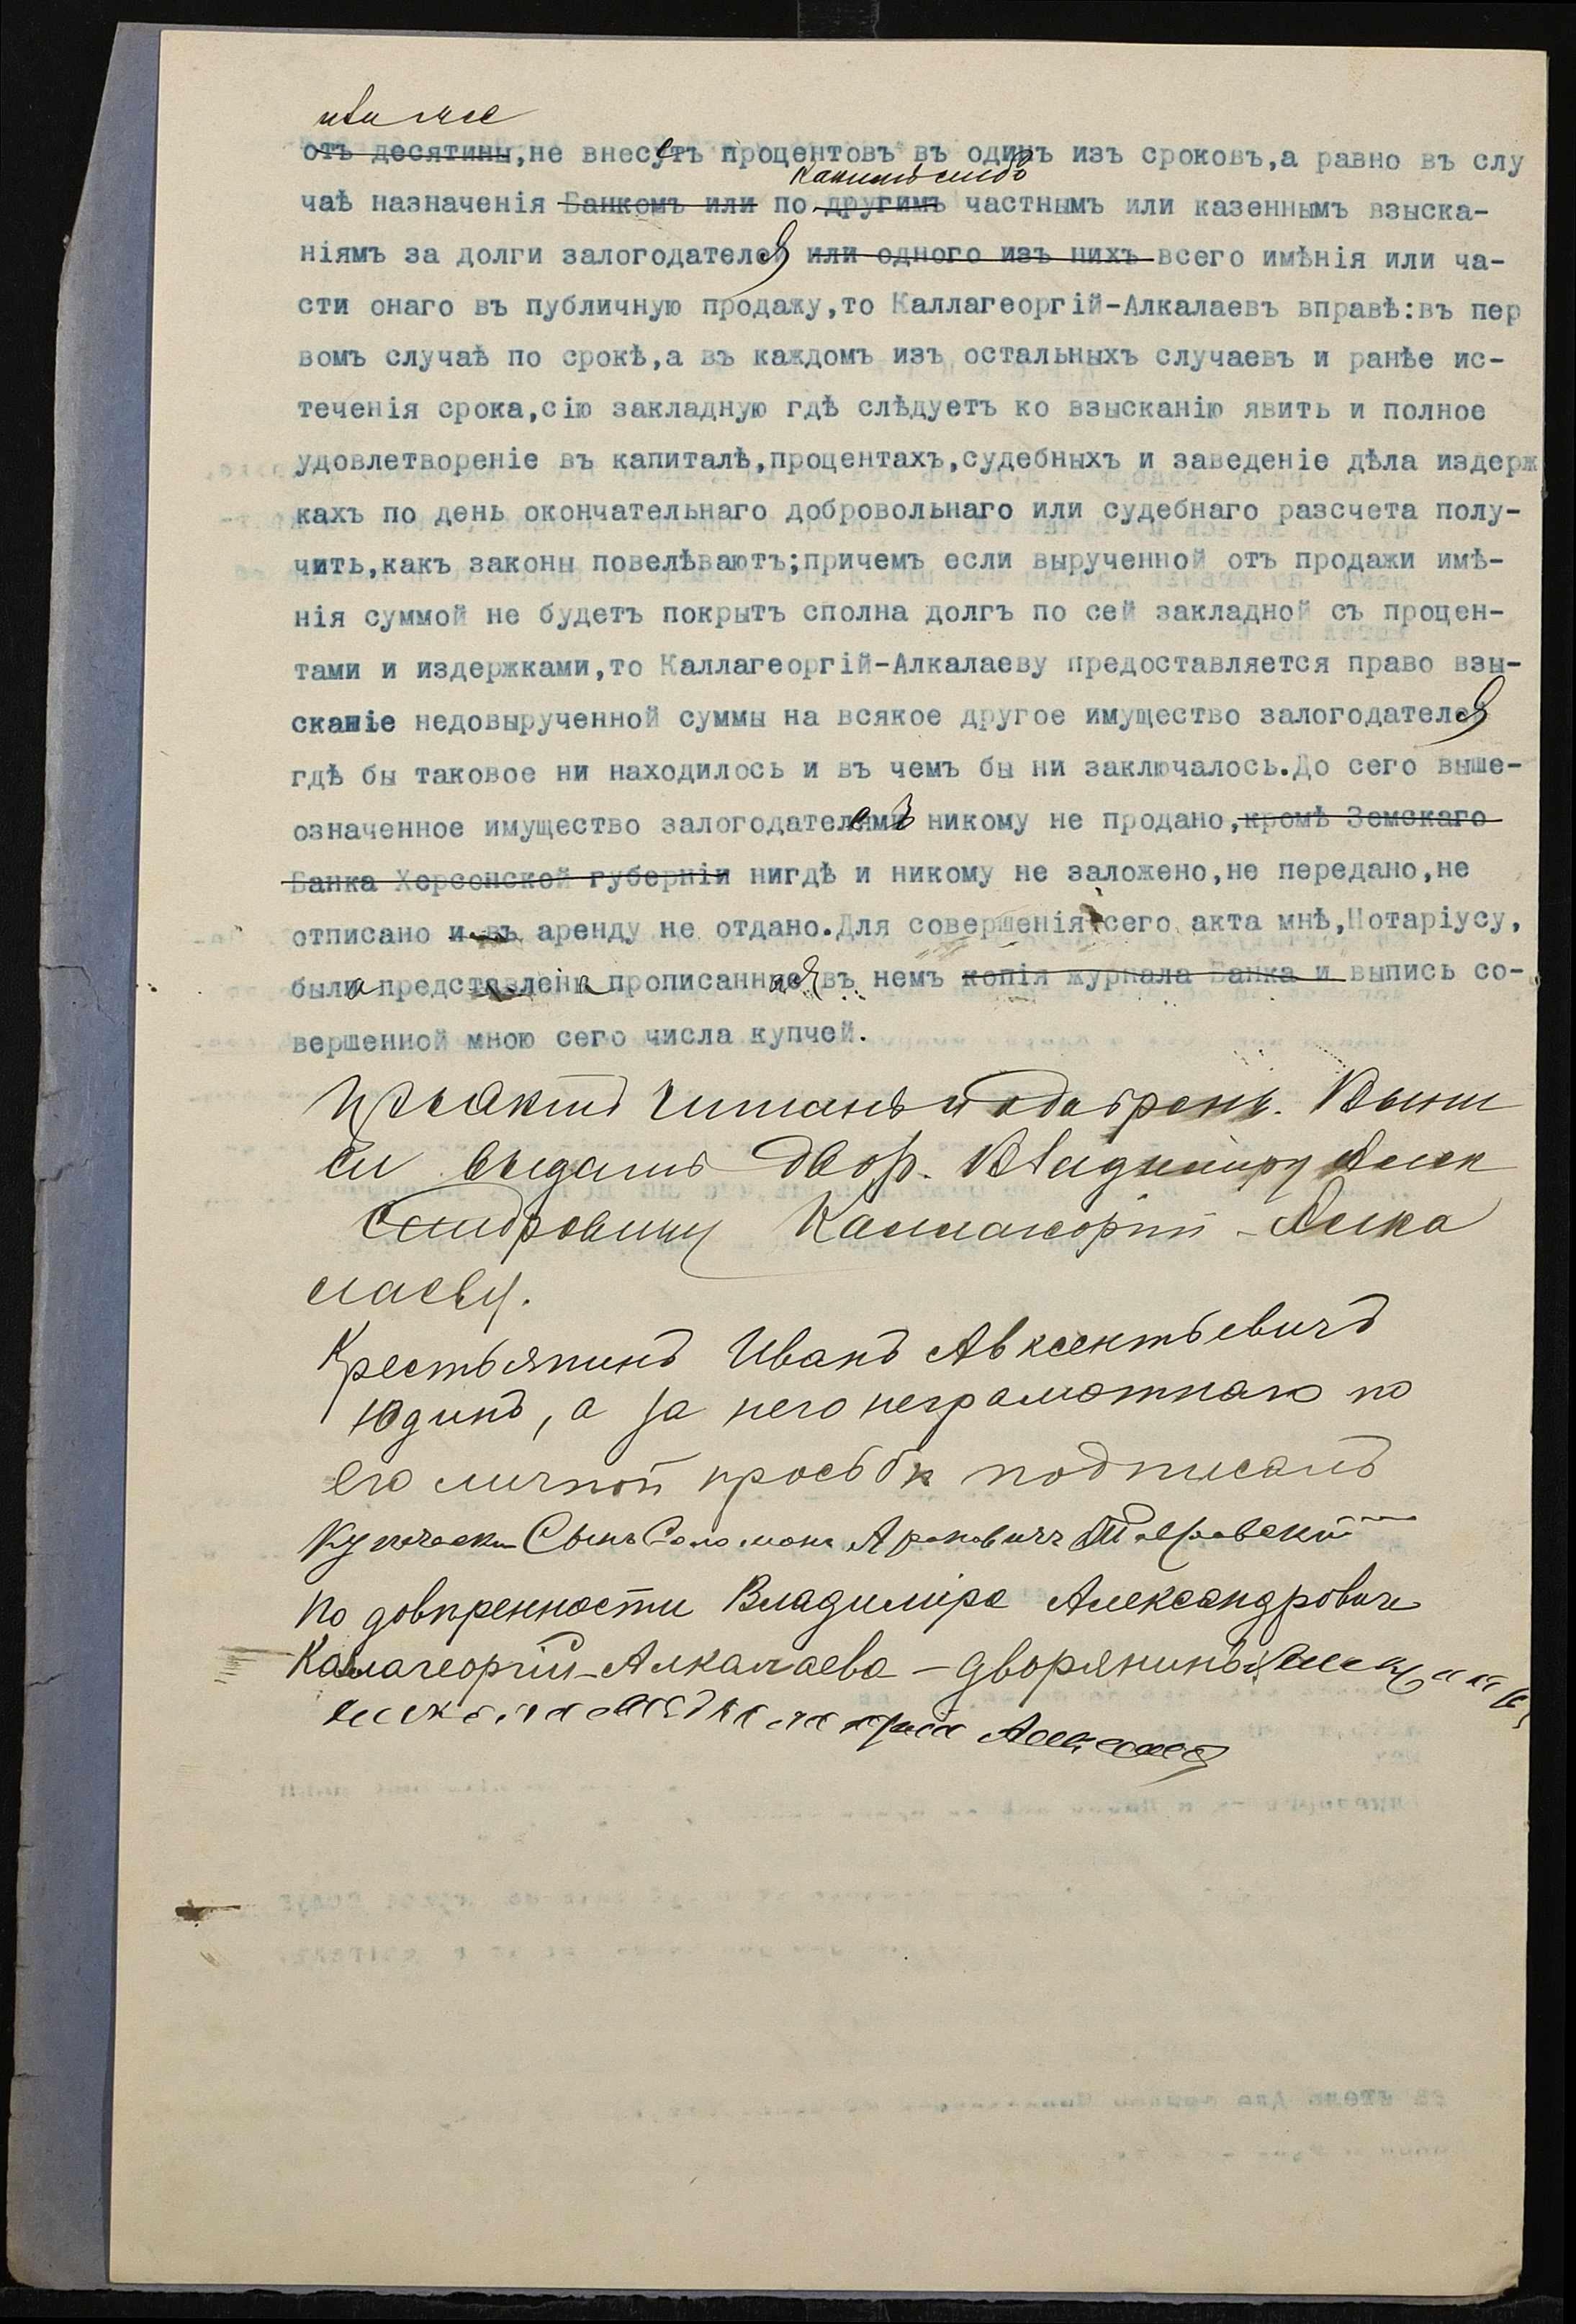 или же
отъ десятины,не внесетъ процентовъ въ одинъ изъ сроковъ,а равно въ слу
какимъ либо
чаѣ назначенія Банкомъ или по другимъ частнымъ или казеннымъ взыска-
ніямъ за долги залогодателя или одного изъ нихъ всего имѣнія или ча-
сти онаго въ публичную продажу,то Каллагеоргій-Алкалаевъ вправѣ:въ пер
вомъ случаѣ по срокѣ,а въ каждомъ изъ остальныхъ случаевъ и ранѣе ис-
теченія срока,сію закладную гдѣ слѣдуетъ ко взысканію явить и полное
удовлетвореніе въ капиталѣ,процентахъ,судебныхъ и заведеніе дѣла издерж
кахъ по день окончательнаго добровольнаго или судебнаго разсчета полу-
чить,какъ законы повелѣваютъ;причемъ если вырученной отъ продажи имѣ-
нія суммой не будетъ покрытъ сполна долгъ по сей закладной съ процен-
тами и издержками,то Каллагеоргій-Алкалаеву предоставляется право взы-
сканіе недовырученной суммы на всякое другое имущество залогодателя
гдѣ бы таковое ни находилось и въ чемъ бы ни заключалось.До сего выше-
означенное имущество залогодателемъ никому не продано,кромѣ Земскаго
Банка Херсонской губерніи нигдѣ и никому не заложено,не передано,не
отписано и въ аренду не отдано.Для совершенія сего акта мнѣ,Нотаріусу,
была представлена прописанная въ немъ копія журнала Банка и выпись со-
вершенной мною сего числа купчей.
актъ читанъ и одобренъ. Выпи
си выдать двор. Владиміру Алек
сандровичу Каллагеоргій-Алка
лаеву.
Крестьянинъ Иванъ Авксентьевичъ
Юдинъ, а за него неграмотнаго по
его личной просьбѣ подписалъ
Купеческий Сынъ Соломонъ Ароновичъ
По довѣренности Владиміра Александровича
Калагеоргій-Алкалаева - дворянинъ